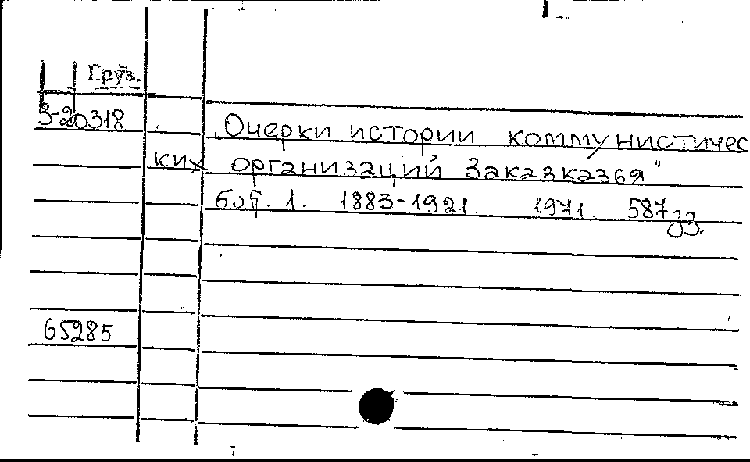 Груз.
3-20318
„Очерки истории коммунистичес
ких организаций Заказказья"
1. 1883-1921 1971. 587
65285